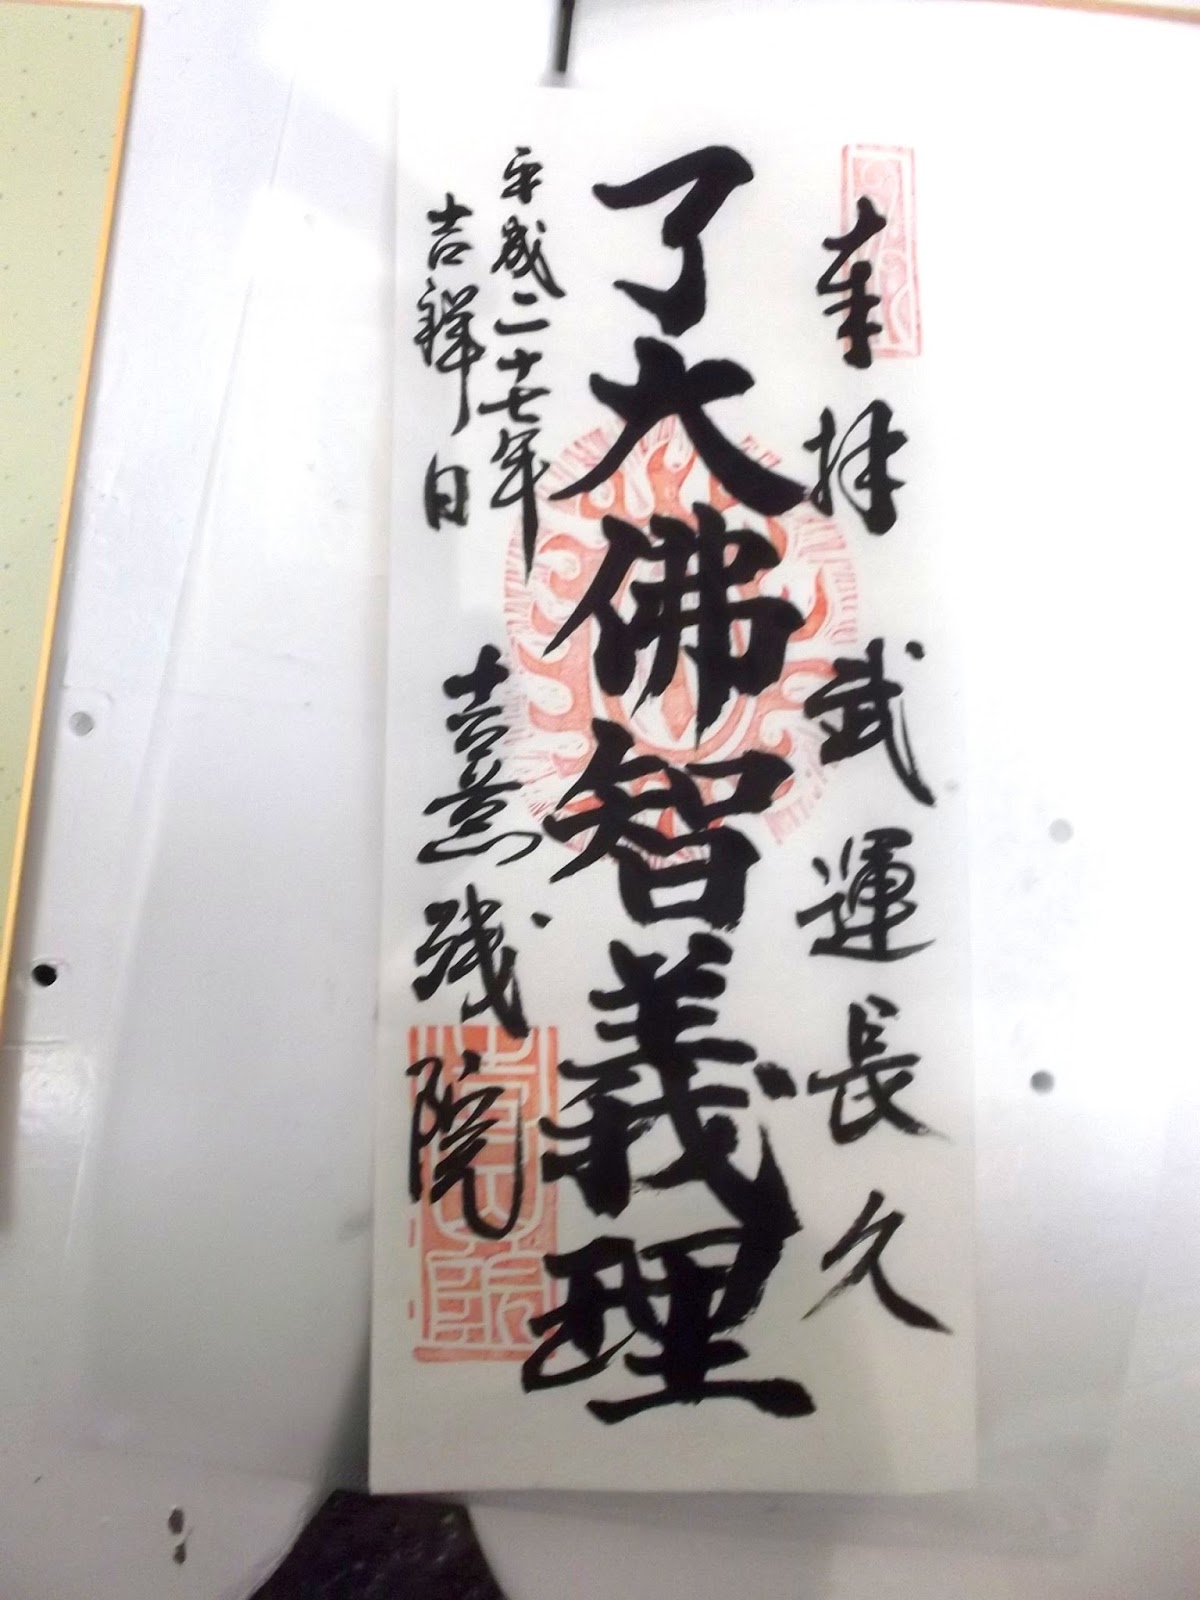 奉拝 武運長久
了大佛智義理
平成二十七年
吉祥日 喜意残院